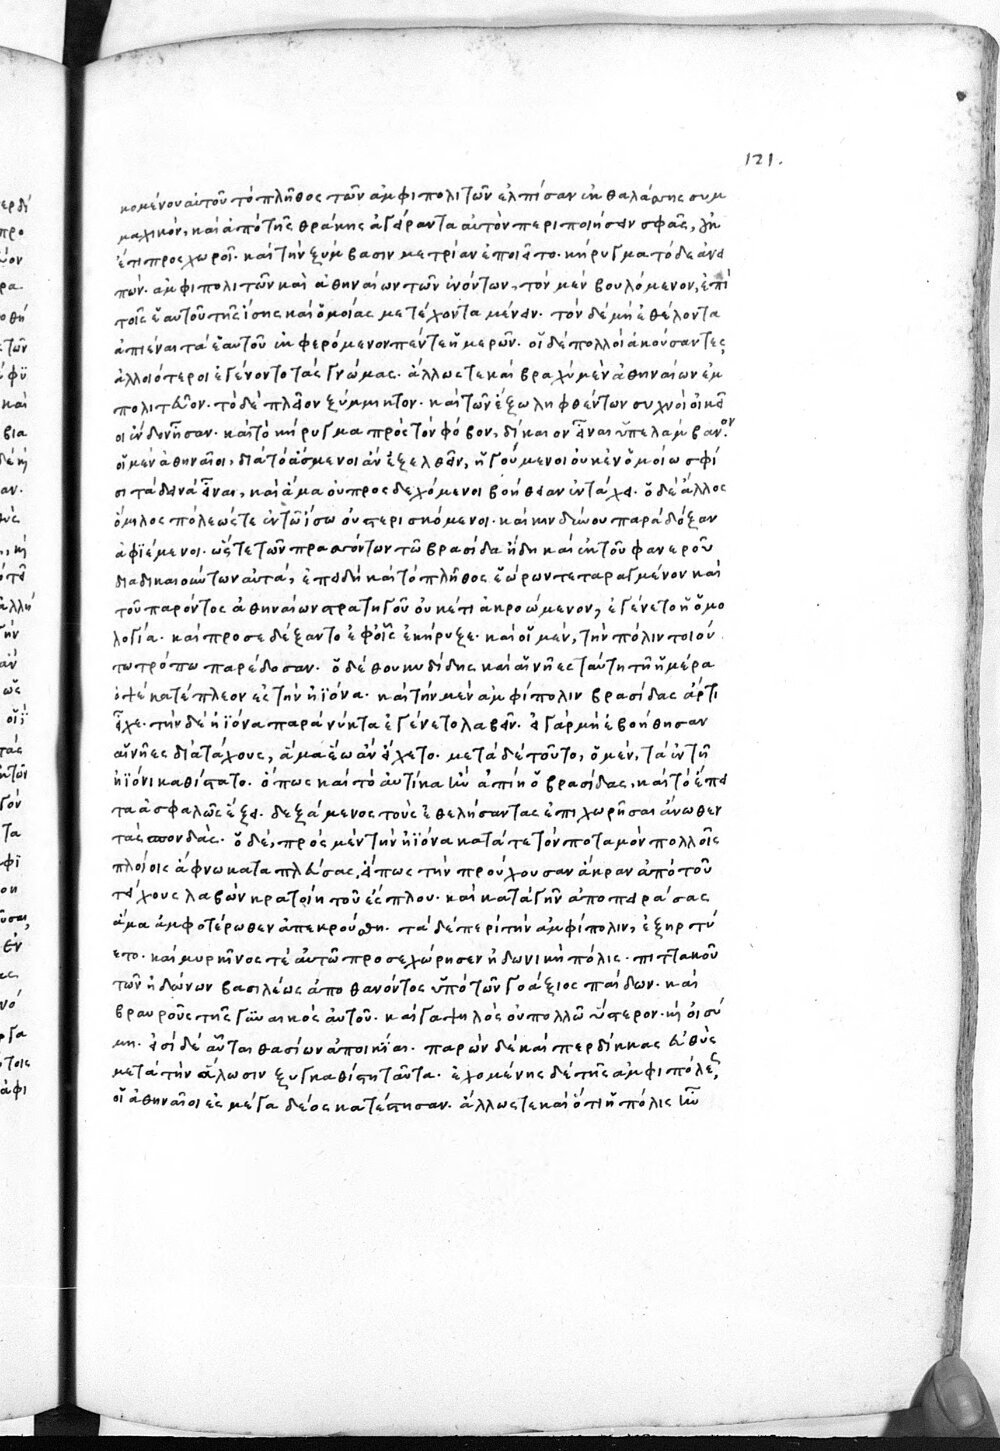 121.
κομένου αὐτοῦ τὸ πλῆθος τῶν ἀμφιπολιτῶν ἐλπίσαν ἐκ θαλάσσης συμ
μαχικὸν, καὶ ἀπὸ τῆς θράκης ἀγείραντα αὐτὸν περιποιήσειν σφᾶς,
ἔτι προσχωροῖ. καὶ τὴν ξύμβασιν μετρίαν ἐποιεῖτο. κήρυγμα τόδε ἀνει
πὼν. ἀμφιπολιτῶν καὶ ἀθηναίων τῶν ἐνόντων, τὸν μὲν βουλόμενον, ἐπὶ
τοῖς ἑαυτοῦ τῆς ἴσης καὶ ὁμοίας μετέχοντα μένειν. τὸν δὲ μὴ ἐθέλοντα
ἀπιέναι τὰ ἑαυτοῦ ἐκφερόμενον πέντε ἡμερῶν. οἱ δὲ πολλοὶ ἀκούσαντες,
ἀλλοιότεροι ἐγένοντο τὰς γνώμας. ἄλλως τε καὶ βραχὺ μὲν ἀθηναίων ἐμ
πολιτεῦον. τὸ δὲ πλεῖον ξύμμικτον. καὶ τῶν ἔξω ληφθέντων συχνοὶ οἰκεῖ
οι ἔνδον ἦσαν. καὶ τὸ κήρυγμα πρὸς τὸν φόβον, δίκαιον εἶναι ὑπελάμβανον.
οἱ μὲν ἀθηναῖοι, διὰ τὸ ἄσμενοι ἂν ἐξελθεῖν, ἡγούμενοι οὐκ ἐν ὁμοίω σφί
σι τὰ δεινὰ εἶναι, καὶ ἅμα οὐ προσδεχόμενοι βοήθειαν ἐν τάχει. ὁ δὲ ἄλλος
ὅμιλος πόλεώς τε ἐν τῶ ἴσω οὐ στερισκόμενοι. καὶ κινδύνου παρὰ δόξαν
ἀφϊέμενοι. ὥστε τῶν πρασσόντων τῶ βρασίδα ἤδη καὶ ἐκ τοῦ φανεροῦ
διαδικαιούντων αὐτὰ, ἐπειδὴ καὶ τὸ πλῆθος ἑώρων τεταραγμένον καὶ
τοῦ παρόντος ἀθηναίων στρατηγοῦ οὐκέτι ἀκροώμενον, ἐγένετο ἡ ὁμο
λογία. καὶ προσεδέξαντο ἐφ' οἷς ἐκήρυξε. καὶ οἱ μὲν, τὴν πόλιν τοιού
τω τρόπω παρέδοσαν. ὁ δὲ θουκυδίδης καὶ αἱ νῆες ταύτη τῆ ἡμέρα
ὀψὲ κατέπλεον ἐς τὴν ἠϊόνα. καὶ τὴν μὲν ἀμφίπολιν βρασίδας ἄρτι
εἶχε. τὴν δὲ ἠϊόνα παρὰ νύκτα ἐγένετο λαβεῖν. εἰ γὰρ μὴ ἐβοήθησαν
αἱ νῆες διὰ τάχους, ἅμα ἕω ἂν εἴχετο. μετὰ δὲ τοῦτο, ὁ μὲν, τὰ ἐν τῆ
ἠϊόνι καθίστατο. ὅπως καὶ τὸ αὐτίκα ἢν ἐπίη ὁ βρασίδας, καὶ τὸ ἔπει
τα ἀσφαλῶς ἕξει. δεξάμενος τοὺς ἐθελήσαντας ἐπιχωρῆσαι ἄνωθεν
τὰς σπονδὰς. ὁ δὲ, πρὸς μὲν τὴν ἠϊόνα κατά τε τὸν ποταμὸν πολλοῖς
πλοίοις ἄφνω καταπλεύσας, εἴπως τὴν προύχουσαν ἄκραν ἀπὸ τοῦ
τείχους λαβὼν κρατοίη τοῦ ἔσπλου. καὶ κατὰ γῆν ἀποπειράσας
ἅμα ἀμφοτέρωθεν ἀπεκρούσθη. τὰ δὲ περὶ τὴν ἀμφίπολιν, ἐξηρτύ
ετο. καὶ μυρκῖνός τε αὐτῶ προσεχώρησεν ἠδωνικὴ πόλις. πιττακοῦ
τῶν ἠδώνων βασιλέως ἀποθανόντος ὑπὸ τῶν γοάξιος παίδων. καὶ
βραυροῦς τῆς γϋναικὸς αὐτοῦ. καὶ γαψηλὸς οὐ πολλῶ ὕστερον. κὴ οἰσύ
μη. εἰσὶ δὲ αὗται θασίων ἀποικίαι. παρὼν δὲ καὶ περδίκκας εὐθὺς
μετὰ τὴν ἅλωσιν ξυγκαθίστη ταῦτα. ἐχομένης δὲ τῆς ἀμφιπόλεως,
οἱ ἀθηναῖοι ἐς μέγα δέος κατέστησαν. ἄλλως τε καὶ ὅτι ἡ πόλις ἦν